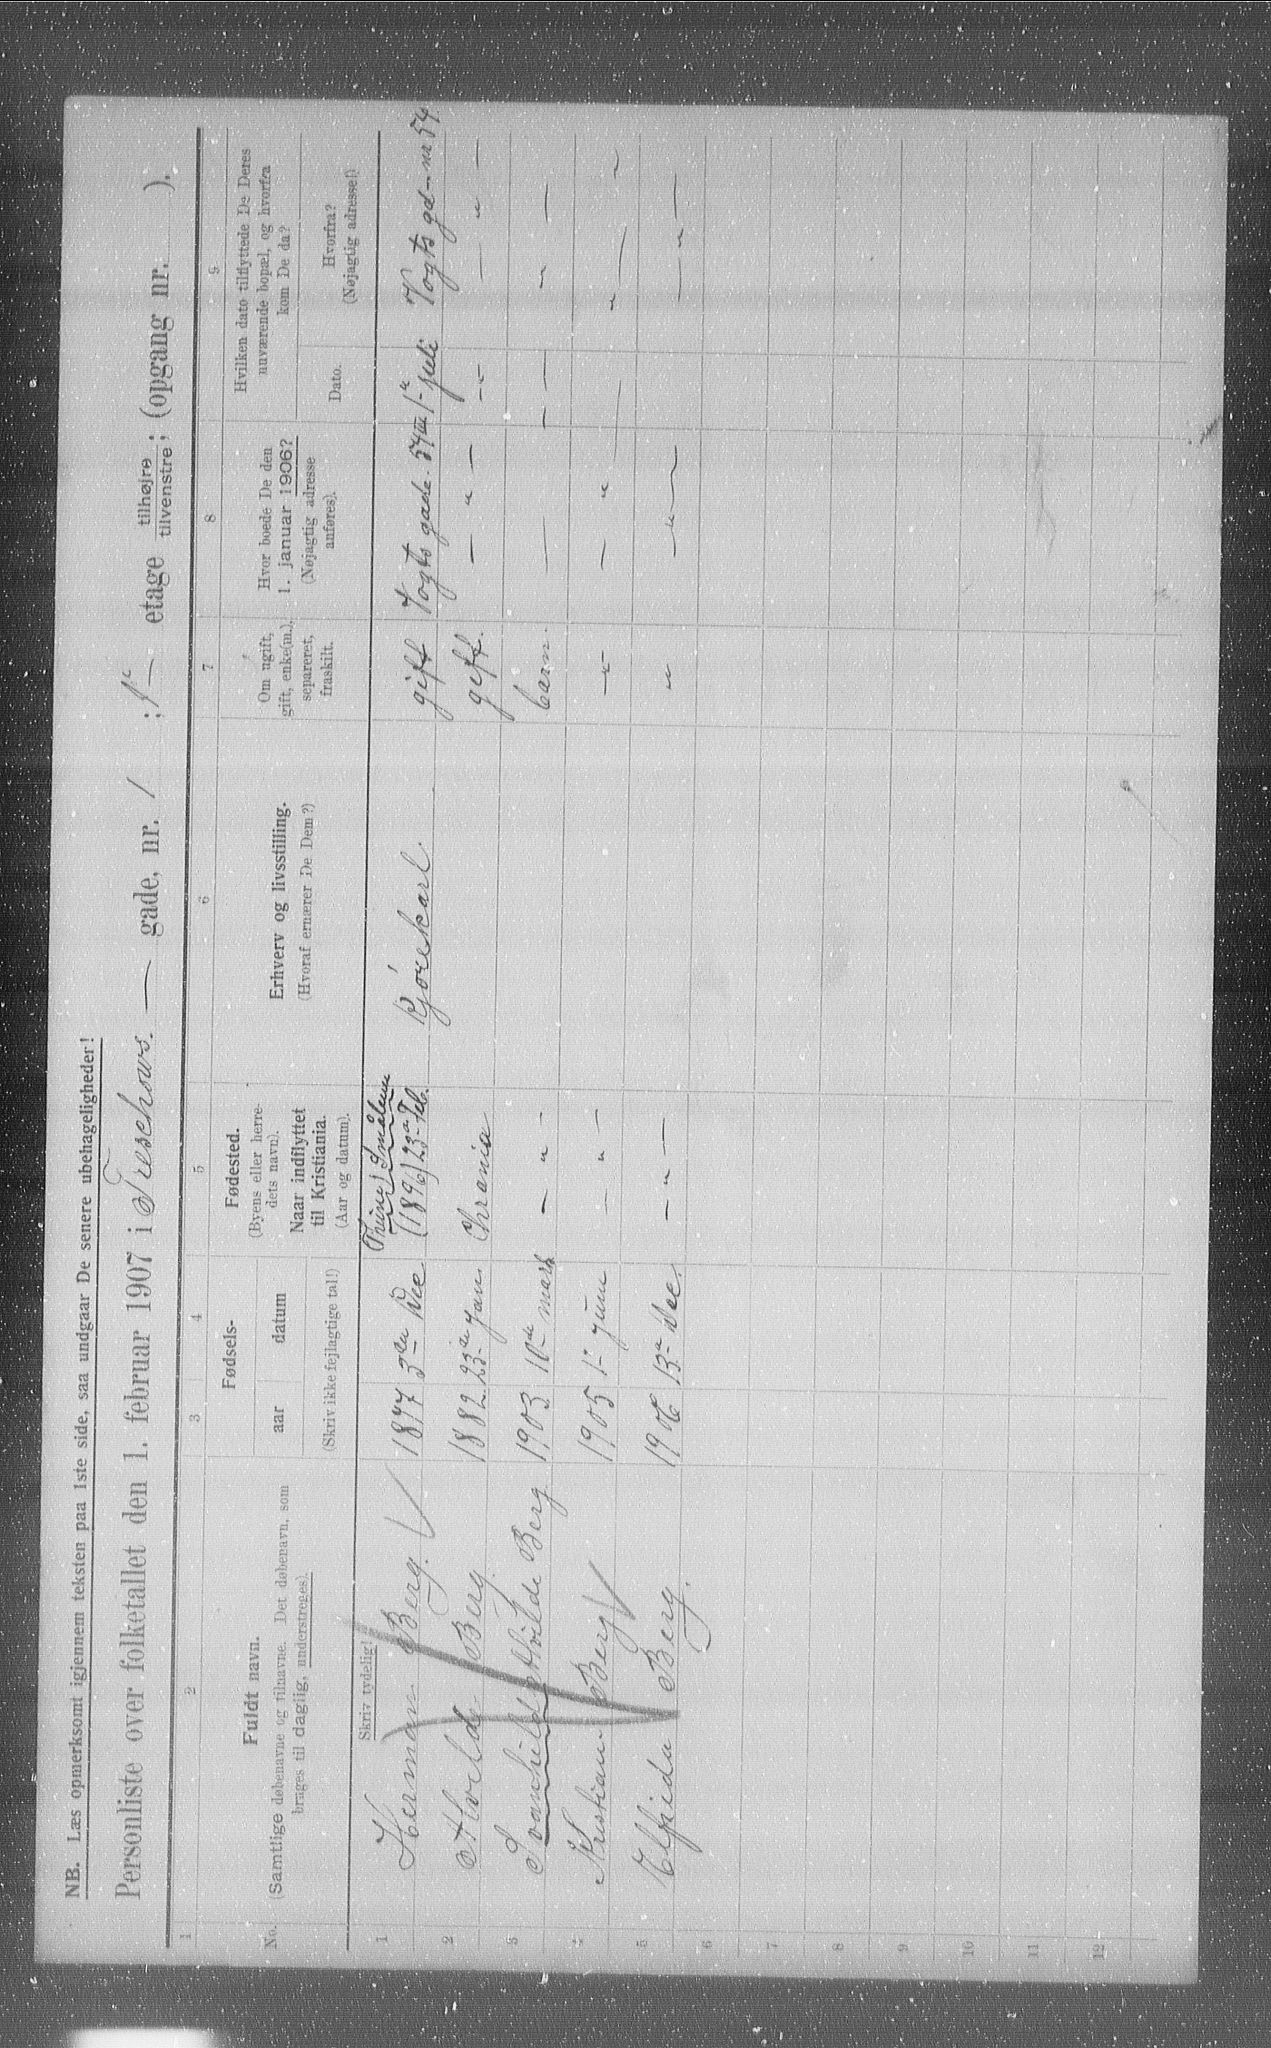 NB. Læs opmerksomt igjennem teksten paa 1ste side, saa undgaar De senere ubehageligheder!
Personliste over folketallet den 1. februar 1907 i Treschows. — gade, nr. 1 ; 1ᵉ — etage tilhøjre tilvenstre; (opgang nr. ).
1 2 3 4 5 6 7 8 9
No.
Fuldt navn.
(Samtlige døbenavne og tilnavne. Det døbenavn, som
bruges til daglig, understreges).
Skriv tydelig!
Fødsels-
aar datum
(Skriv ikke fejlagtige tal!)
Fødested.
(Byens eller herre-
dets navn).
Naar indflyttet
til Kristiania.
(Aar og datum).
Erhverv og livsstilling.
(Hvoraf ernærer De Dem?)
Om ugift,
gift, enke(m.),
separeret,
fraskilt.
Hvor boede De den
1. januar 1906?
(Nøjagtig adresse
anføres).
Hvilken dato tilflyttede De Deres
nuværende bopæl, og hvorfra
kom De da?
Dato.
Hvorfra?
(Nøjagtig adresse!)
1 Herman Berg. 1877 3de Dec Smålenene (1896) 23de Feb. Kjörekarl. gift Vogts gade. 54 III 1ᵉ juli Vogts gd – nr 54
2 Alvilde Berg. 1882 23de Jan. Chrania gift. — " — — " — " —
3 Svanhild Alvilde Berg 1903 10de marts — " — barn. — — — " —
4 Kristian Berg 1905 1ᵉ Juni — " — — " — — " — — " — "
5 Elfrida Berg. 1906 13ᵉ Dec. — " — " — " — — " —
6
7
8
9
10
11
12